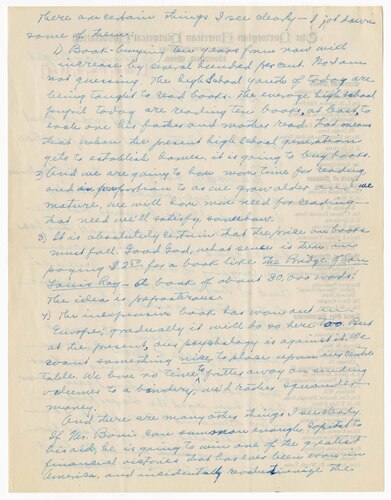 There are certain things I see clearly - I jot down
some of them:
1) Book-buying ten years from now will
increase by several hundred per cent. No I am
not guessing. The high school youth of today are
being taught to read books. The average high school
pupil today are reading ten books, at least, to
each one his father and mother read. That means
that when the present high school generation
gets to establish homes, it is going to buy books.
2) And we are going to have more time for reading
and in proportion to as we grow older and we
mature, we will have more need for reading-
that need we'll satisfy, somehow.
3) It is absolutely certain that the price on books
must fall. Good God, what sense is there in
paying $2.50 for a book like the Bridge of San
Louis Rey - at book of about 30,000 words!
The idea is preposterous.
4) The inexpensive book has won out in
Europe; gradually it will do so here too. But
at the present, our psychology is against it. We
want something nice to place upon our centre
table. We have no time to fritter away on sending
volumes to a bindery, we'd rather squander
money.
And there are many other things I see clearly.
If Mr. Boni can summon enough capital to
his aid, he is going to win one of the greatest
financial victories that has ever been won in
America, and incidentally revolutionize the